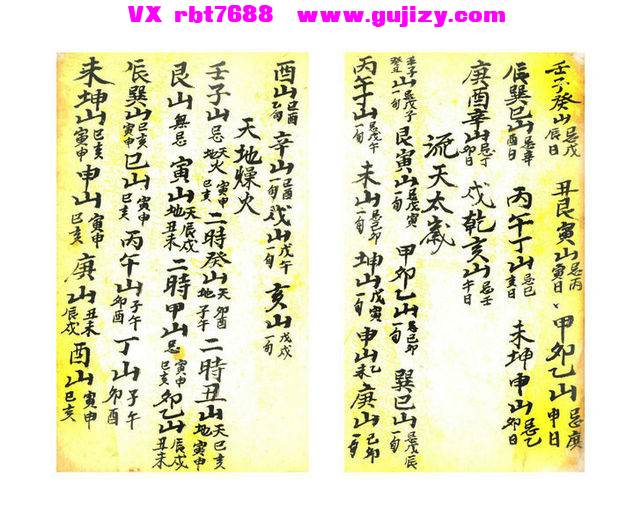 VX rbt7688 www.gujizy.com
壬子癸山忌戌辰日 丑艮寅山忌丙寅日 甲卯乙山忌庚申日
辰巽巳山忌辛酉日 丙午丁山忌巳亥日 未坤申山忌乙卯日
庚酉辛山忌丁卯日 戌乾亥山忌壬午日
流天太歲
壬子癸山忌戊子一旬 艮寅山忌戊寅一旬 甲卯乙山忌己卯一旬 巽巳山忌戊辰一旬
丙午丁山忌戊午一旬 未山忌己卯一旬 坤山戊寅一旬 申山乙未 庚山己卯一旬
酉山己酉一旬 辛山己酉一旬 戌山戊午一旬 亥山戊戌一旬
天地燥火
壬子山忌天火寅申地巳亥二時 癸山天卯酉地子午二時 丑山天巳亥地寅申
艮山無忌 寅山天辰戌地丑未二時 甲山忌寅申巳亥 卯乙山辰戌丑未
辰巽山巳亥寅申 巳山寅申巳亥 丙午山子午卯酉 丁山子午卯酉
未坤山巳亥寅申 申山寅申巳亥 庚山丑未辰戌 酉山寅申巳亥